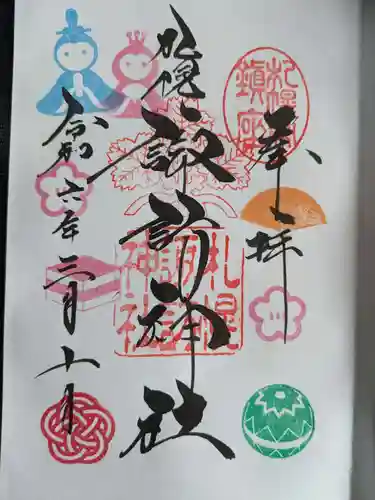 札幌鎮座
奉拝
札幌諏訪神社
札幌諏訪神社
令和六年三月十日